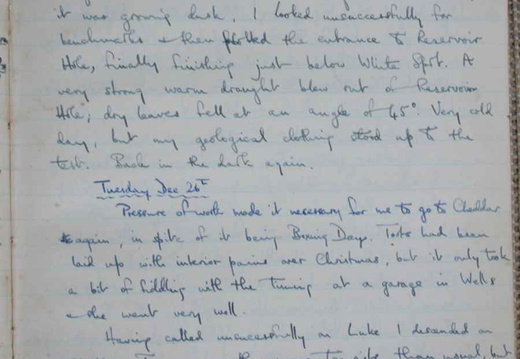 it was growing dusk. I looked unsuccessfully for
benchmarks & then plotted the entrance to Reservoir
Hole, finally finishing just below White Spot. A
very strong warm draught blew out of Reservoir
Hole; dry leaves fell at an angle of 45°. Very cold
day, but my geological clothing stood up to the
test. Back in the dark again.
Tuesday Dec 26th
Pressure of work made it necessary for me to go to Cheddar
again, in spite of it being Boxing Day. Toto had been
laid up with interior pains over Christmas, but it only took
a bit of fiddling with the timing at a garage in Wells
& she went very well.
Having called unsuccessfully on Luke I descended on
than usual but